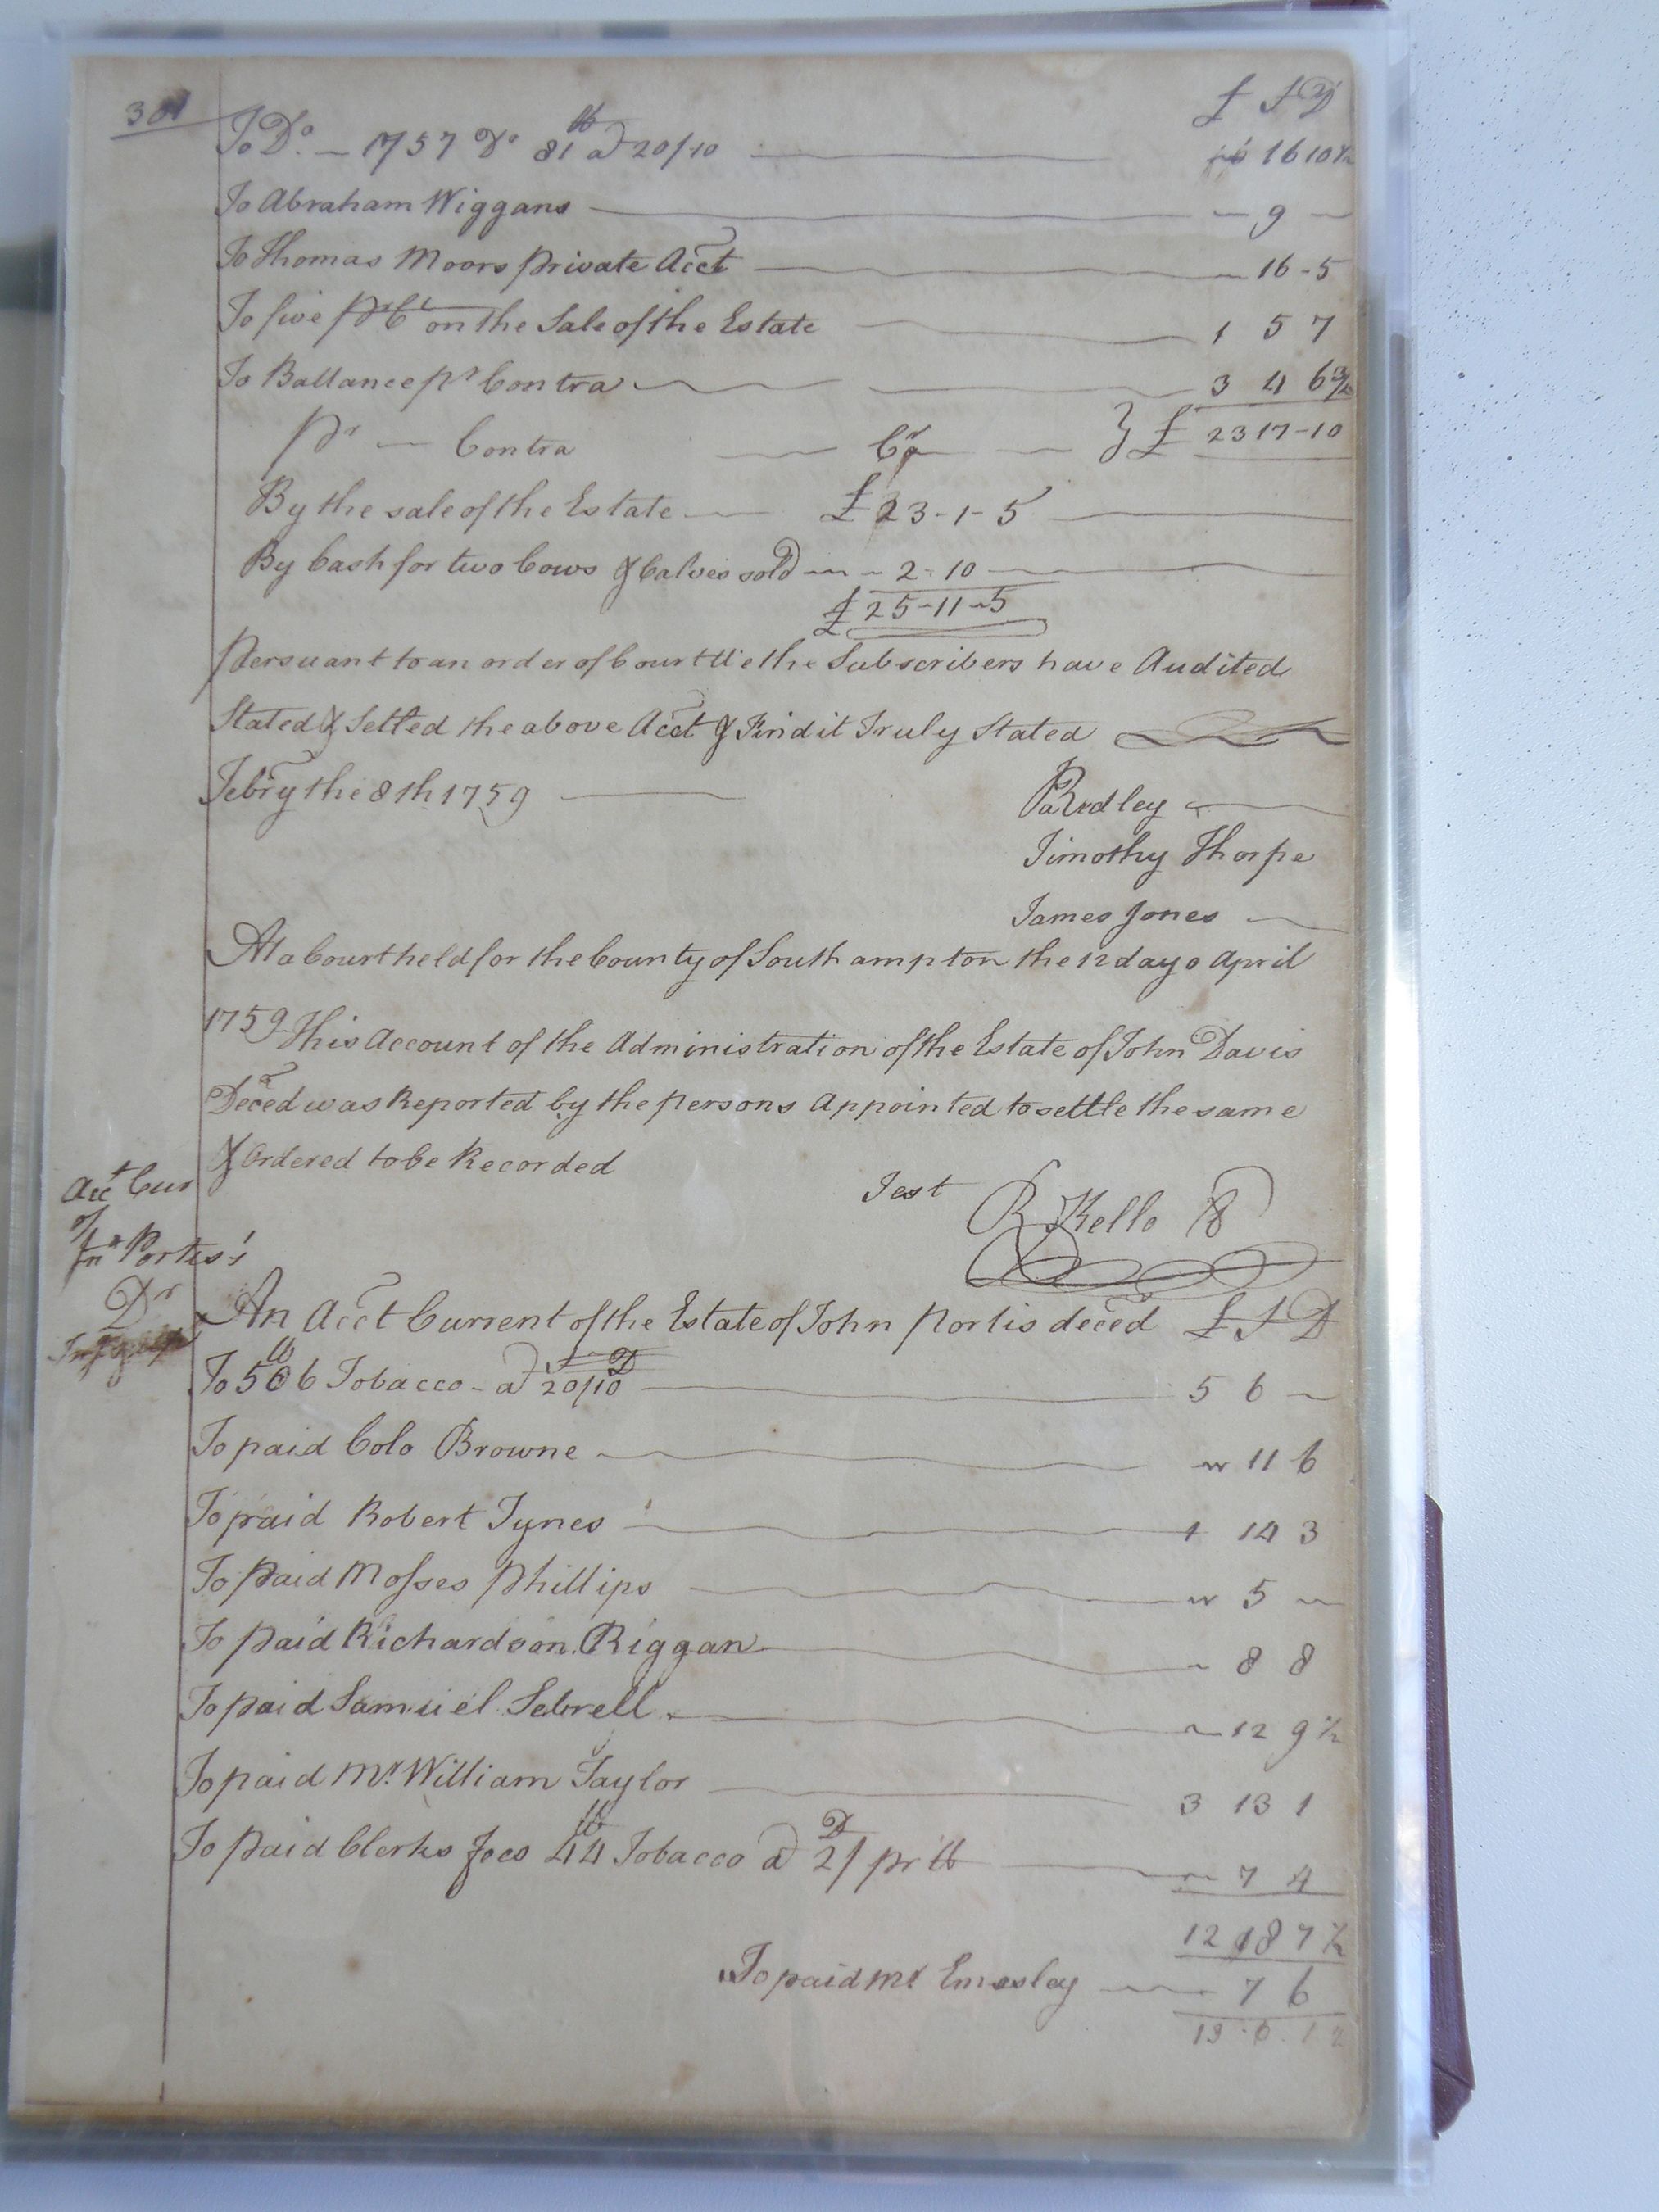 £ S D
To Do. — 1757 Do 81 lb a 20/10 — 16 10½
To Abraham Wiggans — 9 —
To Thomas Moors private Acct — 16-5
To five Pr Ct on the Sale of the Estate — 1 5 7
To Ballance pr Contra — 3 4 6
Pr — Contra — Cr — } £ 23 17-10
By the sale of the Estate — £ 23-1-5
By Cash for two Cows & Calves sold — 2-10
£ 25-11-5
Persuant to an order of Court We the Subscribers have Audited
Stated & Settled the above Acct & Find it Truly Stated
Febry the 8th 1759
Ridley
Timothy Thorpe
James Jones
At a Court held for the County of Southampton the 12 day o April
1759 This Account of the Administration of the Estate of John Davis
Deced was Reported by the persons Appointed to settle the same
& Ordered to be Recorded
Test R Kello
Acct Cur
of
Jno Portis's
Dr
An Acct Current of the Estate of John Portis deced £ S D
To 506 lb Tobacco - a 20/10 — 5 6 —
To paid Colo Browne — 11 6
To paid Robert Tynes — 1 14 3
To paid Mosses Phillips — 5 —
To paid Richardson Riggan — 8 8
To paid Samuel Sebrell — 12 9½
To paid Mr. William Taylor — 3 13 1
To paid Clerks fees 44 lb Tobacco a 2 D / pr lb — 7 4
12 18 7½
To paid Mr Emesley — 7 6